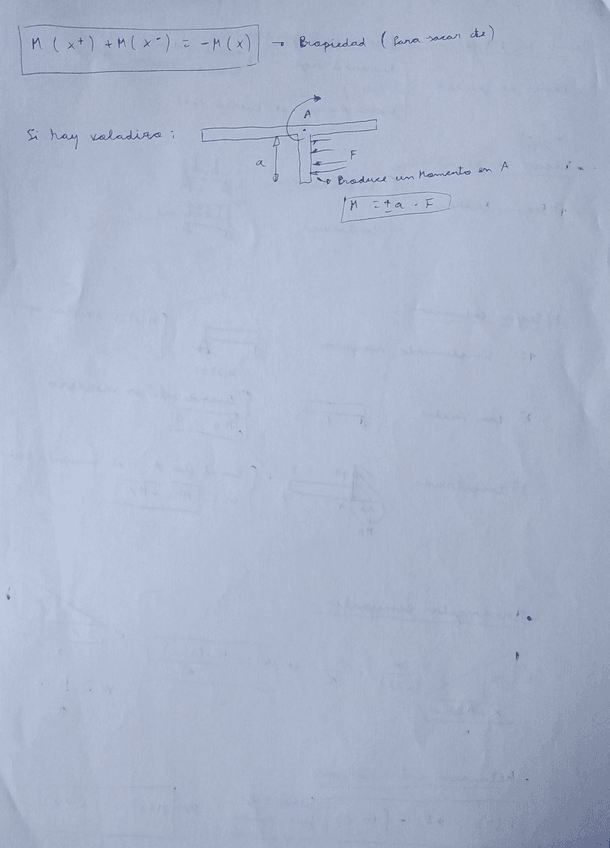 M ( x⁺ ) + M ( x⁻ ) = - M ( x ) → Propiedad ( Para sacar de )
Si hay voladizo :
A
a
F
→ Produce un Momento en A
M = ± a · F